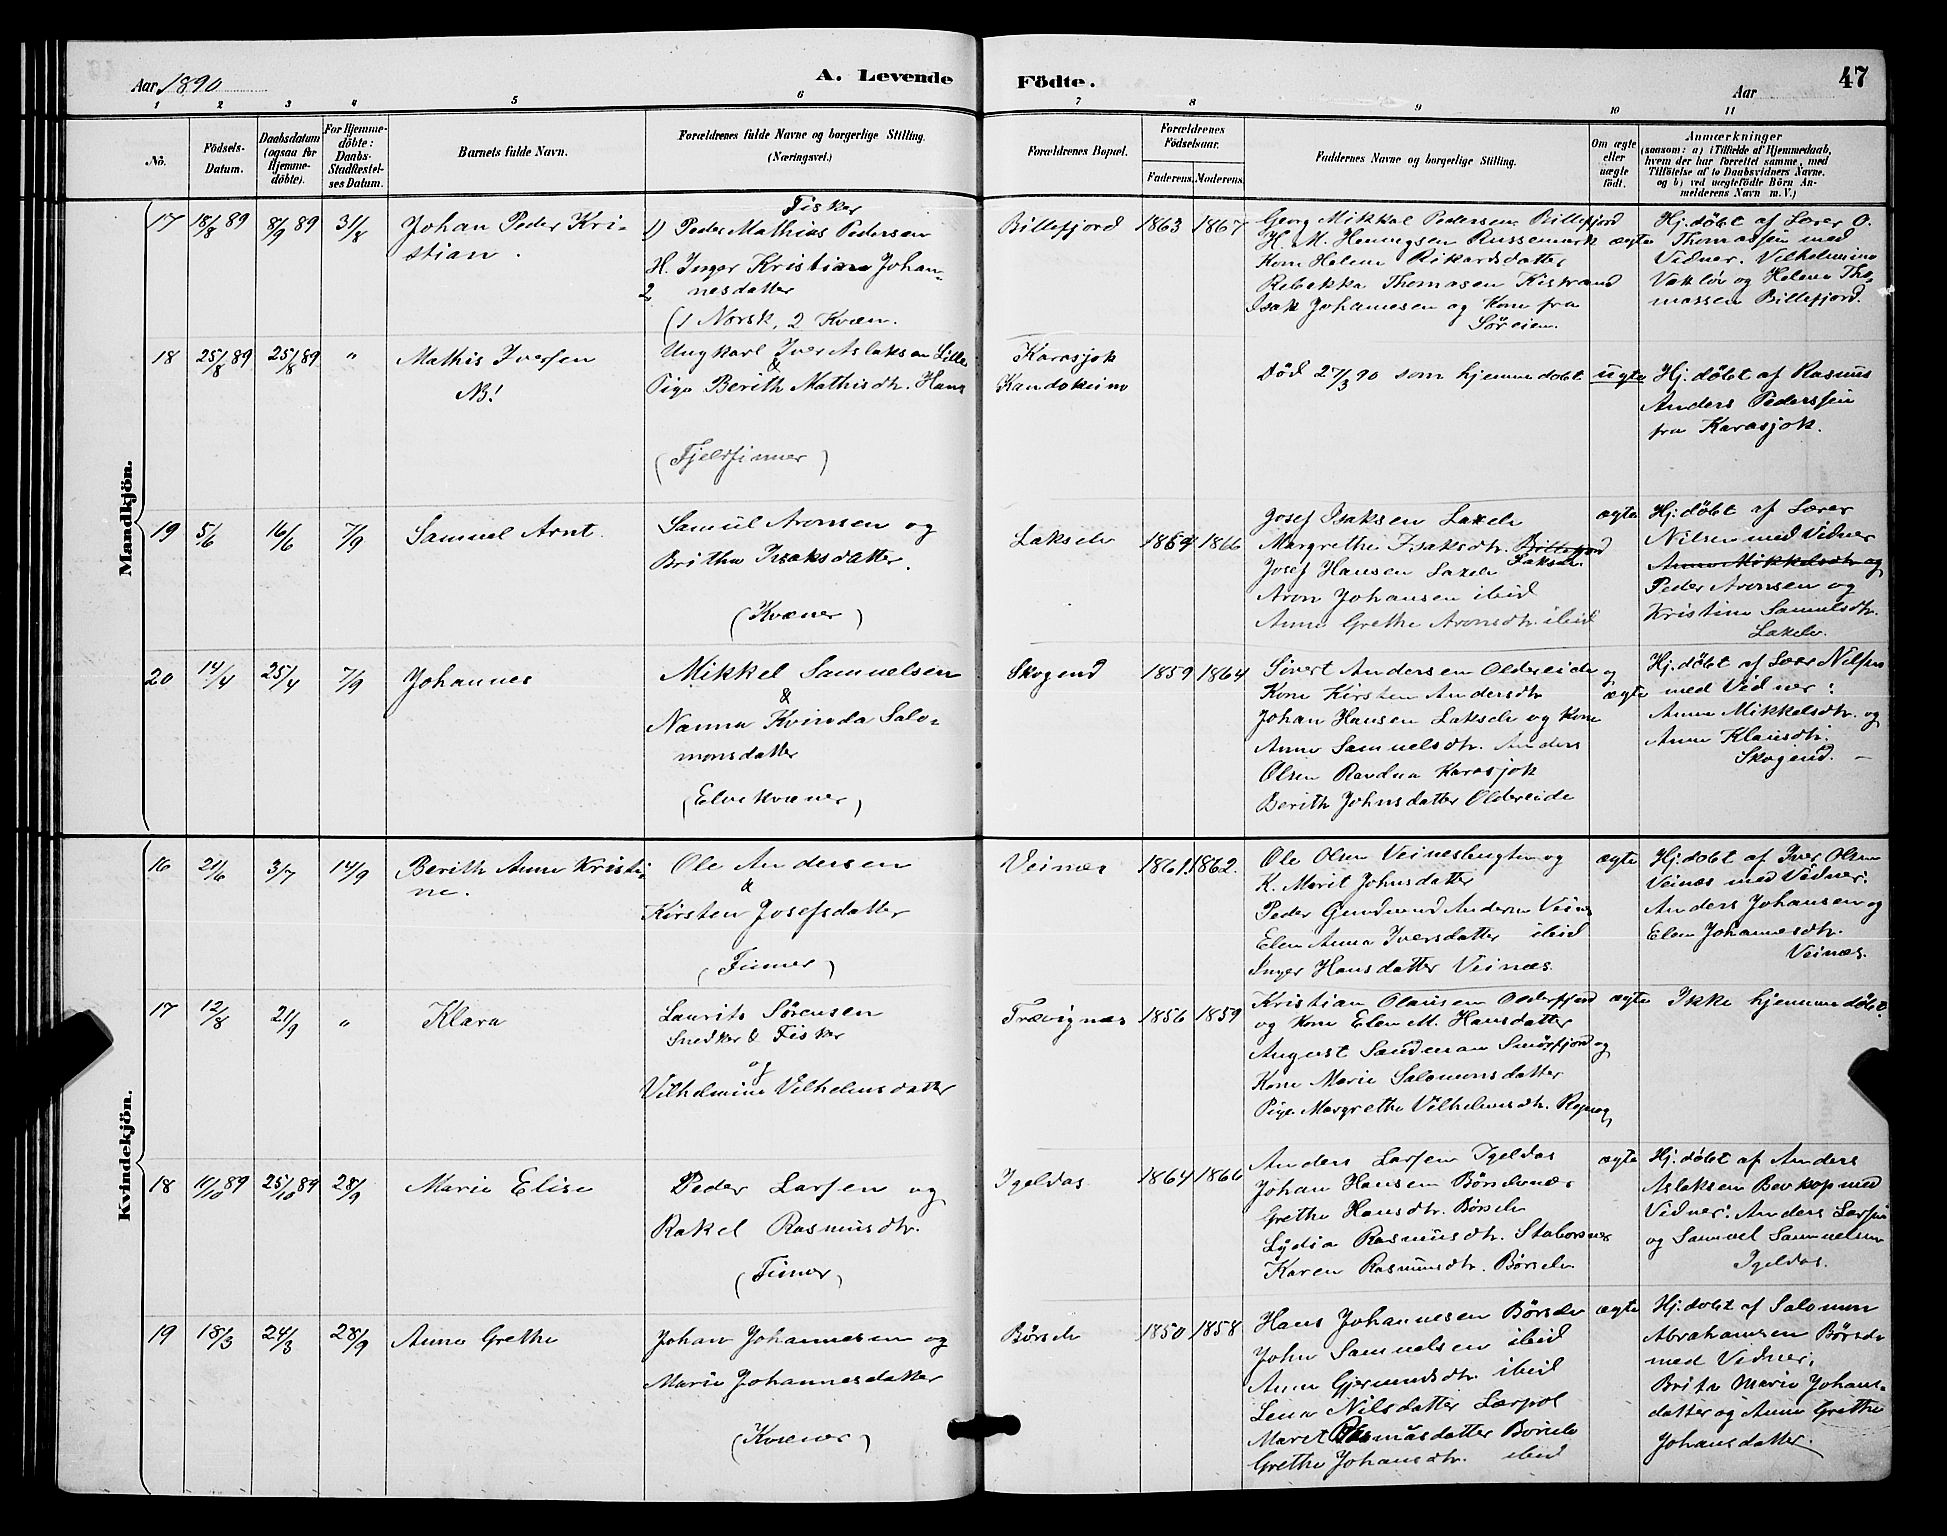 Aar 1890
A. Levende
Födte.
Aar
47
1 2 3 4 5 6 7 8 9 10 11
No.
Födsels-
Datum.
Daabsdatum
(ogsaa for
Hjemme-
döbte).
For Hjemme-
döbte:
Daabs-
Stadfæstel-
ses Datum.
Barnets fulde Navn.
Forældrenes fulde Navne og borgerlige Stilling.
(Næringsvei.)
Forældrenes Bopæl.
Forældrenes
Födselsaar.
Faderens. Moderens.
Faddernes Navne og borgerlige Stilling.
Om ægte
eller
uægte
födt.
Anmærkninger
(saasom: a) i Tilfælde af Hjemmedaab,
hvem der har forrettet samme, med
Tilföielse af to Daabsvidners Navne,
og b) ved uægtefödte Börn An-
melderens Navn m. V.)
Mandkjön.
17 18/8 89 8/9 89 31/8
Johan Peder Kri-
stian.
Fisker
1) Peder Mathias Pedersen
H. Inger Kristine Johan-
2 nesdatter
(1 Norsk, 2 Kvæn.
Billefjord 1863 1867
Georg Mikkel Pedersen Billefjord
H. M. Henningsen Russemark
Kone Helene Rikardsdatter
Rebekka Thomasen Kistrand
Isak Johannesen og Kone fra
Søreien.
ægte
Hj. døbt af Lærer O.
Thomassen med
Vidner. Vilhelmine
og Helene Tho-
massen Billefjord.
18 25/8 89 25/8 89 "
Mathis Iversen
NB!
Ungkarl Iver Aslaksen Lille
&
Pige Berith Mathisdtr. Hans
(Fjeldfinner)
Karasjok
Kautokeino
Død 27/3 90 som hjemmedøbt
uægte
Hj. døbt af Rasmus
Anders Pederssen
fra Karasjok.
19 5/6 16/6 7/9
Samuel Arnt.
Samuel Aronsen og
Britha Isaksdatter.
(Kvæner)
Lakselv 1864 1866
Josef Isaksen Laxelv
Margrethe Isaksdtr. Billefjord
Lakselv
Josef Hansen Laxelv
Aron Johansen ibid
Anne Grethe Aronsdtr. ibid
ægte
Hj. døbt af Lærer
Nilsen med Vidner
Anne Mikkelsdtr og
Peder Aronsen og
Kristine Samuelsdtr.
Lakelv.
20 14/4 25/4 7/9
Johannes
Mikkel Samuelsen
&
Nanna Kvivda Salo-
monsdatter
(Elvekvæner)
Skogend 1859 1864
Sivert Andersen Oldereide og
Kone Kirsten Andersdtr
Johan Hansen Lakselv og Kone
Anne Samuelsdtr. Anders
Olsen Ravdna Karasjok
Berith Johnsdatter Oldereide
ægte
Hj. døbt af Lær Nilsen
med Vidner:
Anne Mikkelsdtr. og
Anne Klausdtr.
Skogend. -
Kvindekjön.
16 21/6 3/7 14/9
Berith Anne Kristi-
ne.
Ole Andersen
&
Kirsten Josefsdatter
(Finner)
Veinæs 1861 1862.
Ole Olsen Veinesbugten og
K. Marit Johnsdatter
Peder Gundmund Andersen Veines
Elen Anna Iversdatter ibid
Inger Hansdatter Veinæs.
ægte
Hj. døbt af Iver Olsen
Veinæs med Vidner:
Anders Johansen og
Elen Johannesdtr.
Veinæs.
17 12/8 21/9 "
Klara
Laurits Sørensen
Snedker & Fisker
og
Vilhelmine Vilhelmsdatter
Trævignæs 1856 1859
Kristian Olausen Olderfjord
og Kone Elen M. Hansdatter
August Sandman Smørfjord og
Kone Marie Salomonsdatter
Pige Margrethe Vilhelmsdtr. Repvog
ægte
Ikke hjemmedøbt.
18 11/10 89 25/10 89 28/9
Marie Elise
Peder Larsen og
Rakel Rasmusdtr.
(Finner)
Igeldas 1864 1866
Anders Larsen Igeldas
Johan Hansen Børselvnæs
Grethe Hansdtr. Børselv
Lydia Rasmusdtr. Stabursnes
Karen Rasmusdtr. Børselv
ægte
Hj. døbt af Anders
Aslaksen Bevkop med
Vidner: Anders Larsen
og Samuel Samuelsen
Igeldas.
19 18/3 24/3 28/9
Anne Grethe
Johan Johannesen og
Marie Johannesdatter
(Kvæner)
Børselv 1850 1858
Hans Johannesen Børselv
John Samuelsen ibid
Anne Gjermundsdtr ibid
Lena Nilsdatter Lærpol
Maret Thomasdatter Børselv
Grethe Johansdtr. ibid
ægte
Hj. døbt af Salomon
Abrahamsen Børselv
med Vidner:
Brita Marie Johans-
datter og Anne Grethe
Johansdatter.